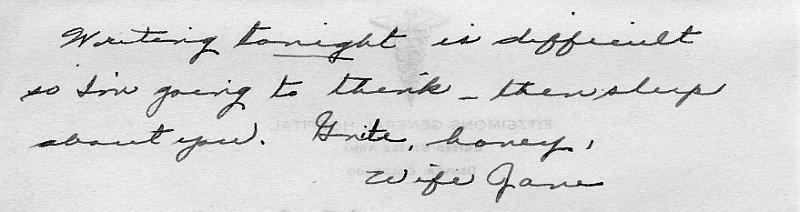 Writing tonight is difficult
so I'm going to think - then sleep
about you. Gnite, honey,
Wife Jane
FITZSIMONS GENERAL HOSPITAL